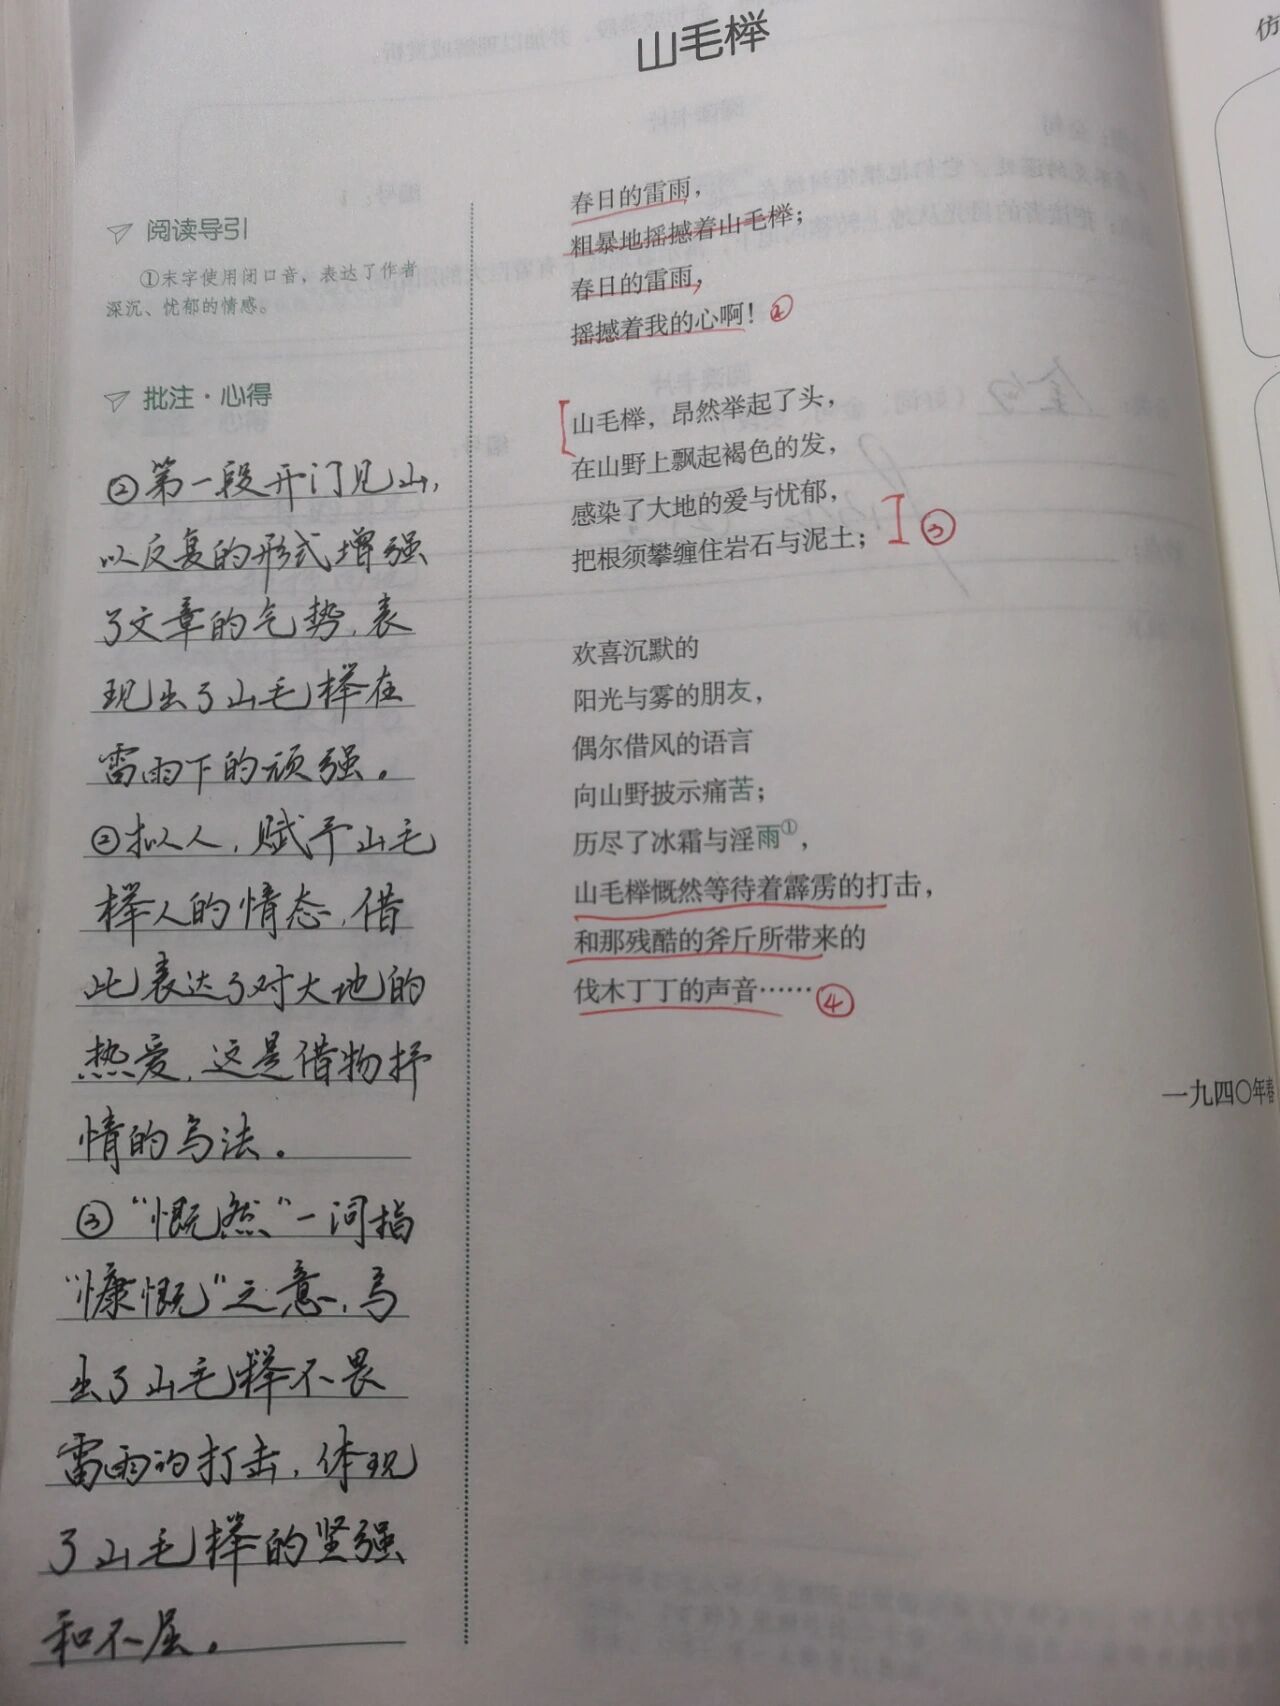 山毛榉
仿
阅读导引
①末字使用闭口音，表达了作者
深沉、忧郁的情感。
批注·心得
②第一段开门见山，
以反复的形式增强
了文章的气势，表
现出了山毛榉在
雷雨下的顽强。
②拟人，赋予山毛
榉人的情态，借
此表达了对大地的
热爱，这是借物抒
情的写法。
③“慨然”一词指
“慷慨”之意，写
出了山毛榉不畏
雷雨的打击，体现
了山毛榉的坚强
和不屈。
春日的雷雨，
粗暴地摇撼着山毛榉；
春日的雷雨，
摇撼着我的心啊！②
山毛榉，昂然举起了头，
在山野上飘起褐色的发，
感染了大地的爱与忧郁，
把根须攀缠住岩石与泥土；③
欢喜沉默的
阳光与雾的朋友，
偶尔借风的语言
向山野披示痛苦；
历尽了冰霜与淫雨①，
山毛榉慨然等待着霹雳的打击，
和那残酷的斧斤所带来的
伐木丁丁的声音……④
一九四〇年春